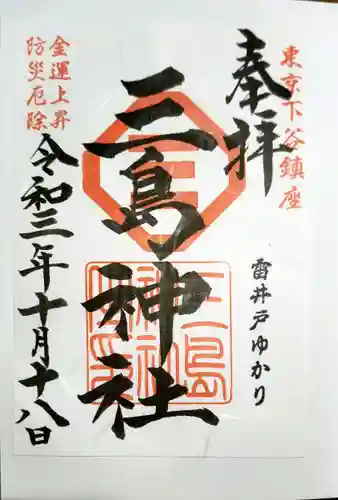 東京下谷鎮座
奉拝
雷井戸ゆかり
三島神社
金運上昇
防災厄除
令和三年十月十八日